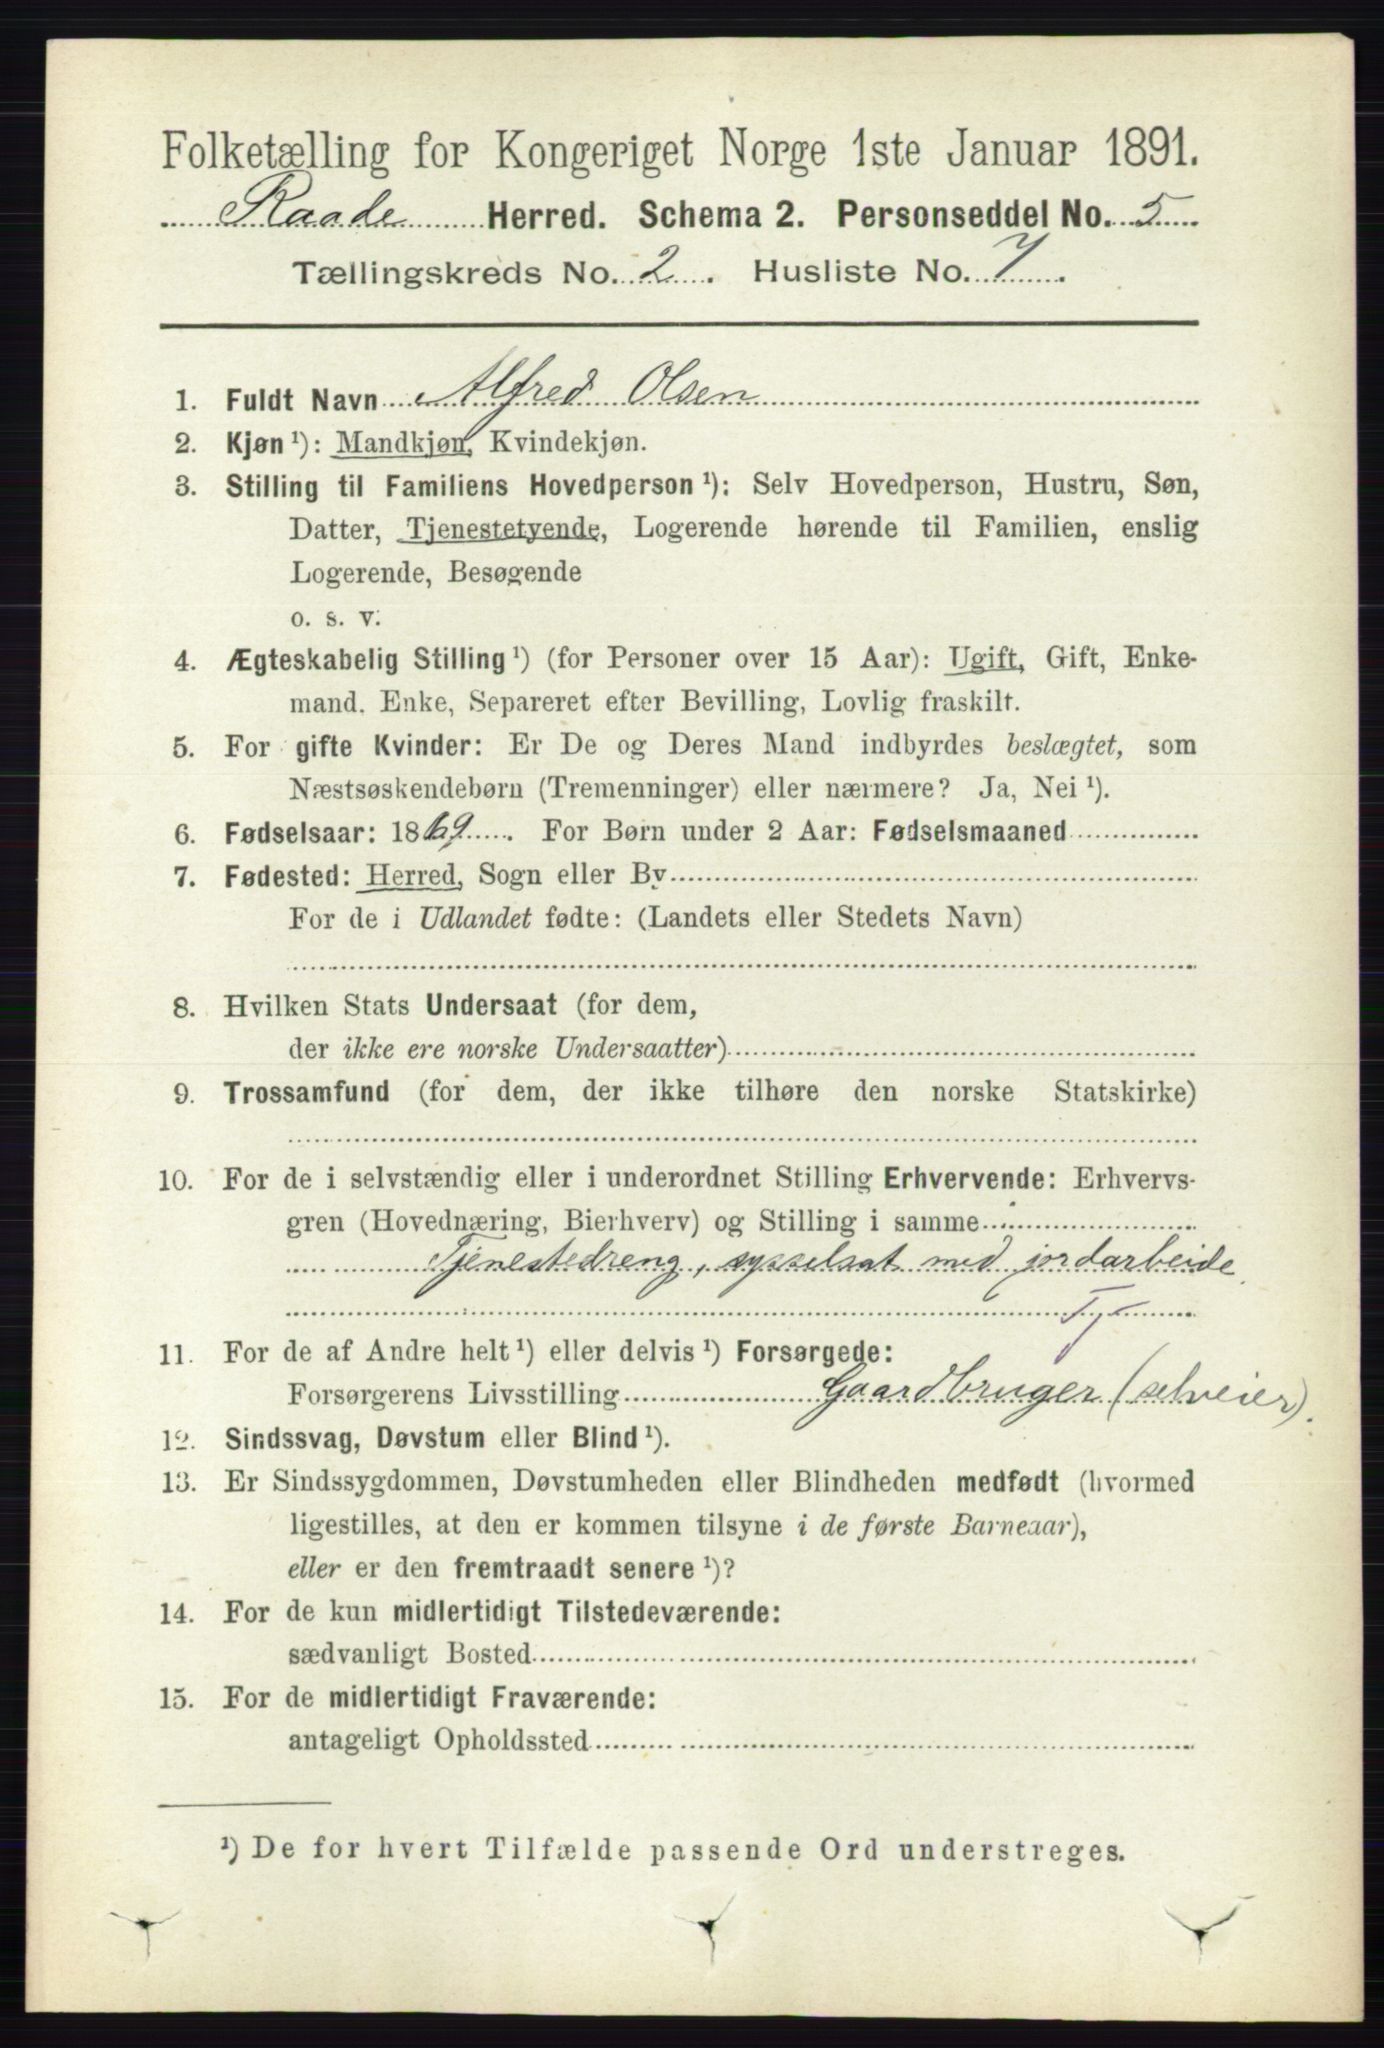 Folketælling for Kongeriget Norge 1ste Januar 1891.
Raade Herred. Schema 2. Personseddel No. 5
Tællingskreds No. 2. Husliste No. 7
1. Fuldt Navn Alfred Olsen
2. Kjøn ¹): Mandkjøn, Kvindekjøn.
3. Stilling til Familiens Hovedperson ¹): Selv Hovedperson, Hustru, Søn,
Datter, Tjenestetyende, Logerende hørende til Familien, enslig
Logerende, Besøgende
o. s. v.
4. Ægteskabelig Stilling ¹) (for Personer over 15 Aar): Ugift, Gift, Enke-
mand. Enke, Separeret efter Bevilling, Lovlig fraskilt.
5. For gifte Kvinder: Er De og Deres Mand indbyrdes beslægtet, som
Næstsøskendebørn (Tremenninger) eller nærmere? Ja, Nei ¹).
6. Fødselsaar: 1869. For Børn under 2 Aar: Fødselsmaaned
7. Fødested: Herred, Sogn eller By
For de i Udlandet fødte: (Landets eller Stedets Navn)
8. Hvilken Stats Undersaat (for dem,
der ikke ere norske Undersaatter)
9. Trossamfund (for dem, der ikke tilhøre den norske Statskirke)
10. For de i selvstændig eller i underordnet Stilling Erhvervende: Erhvervs-
gren (Hovednæring, Bierhverv) og Stilling i samme
Tjenestedreng, sysselsat med jordarbeide.
Tj
11. For de af Andre helt ¹) eller delvis ¹) Forsørgede:
Forsørgerens Livsstilling Gaardbruger (selveier).
12. Sindssvag, Døvstum eller Blind ¹).
13. Er Sindssygdommen, Døvstumheden eller Blindheden medfødt (hvormed
ligestilles, at den er kommen tilsyne i de første Barneaar),
eller er den fremtraadt senere ¹)?
14. For de kun midlertidigt Tilstedeværende:
sædvanligt Bosted
15. For de midlertidigt Fraværende:
antageligt Opholdssted
¹) De for hvert Tilfælde passende Ord understreges.